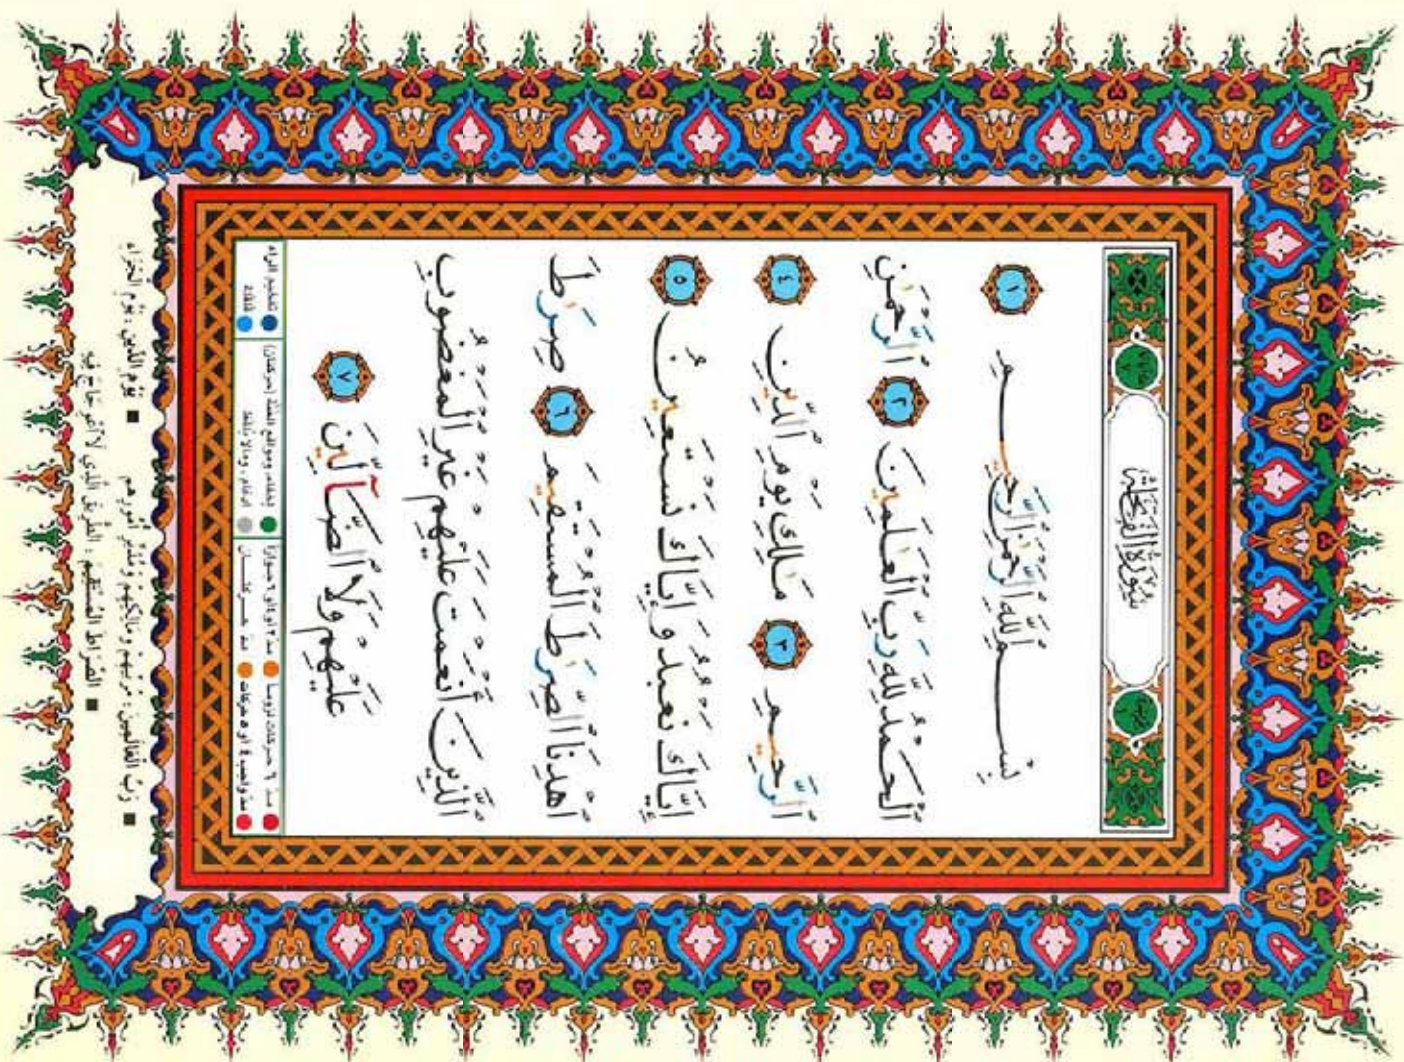 سُورَةُ الْفَاتِحَةِ
بِسْمِ ٱللَّهِ ٱلرَّحْمَٰنِ ٱلرَّحِيمِ ١
ٱلْحَمْدُ لِلَّهِ رَبِّ ٱلْعَٰلَمِينَ ٢ ٱلرَّحْمَٰنِ
ٱلرَّحِيمِ ٣ مَٰلِكِ يَوْمِ ٱلدِّينِ ٤
إِيَّاكَ نَعْبُدُ وَإِيَّاكَ نَسْتَعِينُ ٥
ٱهْدِنَا ٱلصِّرَٰطَ ٱلْمُسْتَقِيمَ ٦ صِرَٰطَ
ٱلَّذِينَ أَنْعَمْتَ عَلَيْهِمْ غَيْرِ ٱلْمَغْضُوبِ
عَلَيْهِمْ وَلَا ٱلضَّآلِّينَ ٧
● مدّ ٦ حركات لزوماً ● مدّ ٢ أو ٤ أو ٦ جوازاً ● إخفاء، ومواقع الغنّة (حركتان) ● تفخيم الراء
● مدّ واجب ٤ أو ٥ حركات ● مدّ حركتان ● إدغام، وما لا يُلفظ ● قلقلة
■ رَبِّ الْعَالَمِينَ: مُرَبِّيهِمْ وَمَالِكِهِمْ وَمُدَبِّرِ أُمُورِهِم ■ يَوْمِ الدِّينِ: يَوْمِ الْجَزَاءِ
■ الصِّرَاطَ الْمُسْتَقِيمَ: الطَّرِيقَ الَّذِي لَا اعْوِجَاجَ فِيهِ